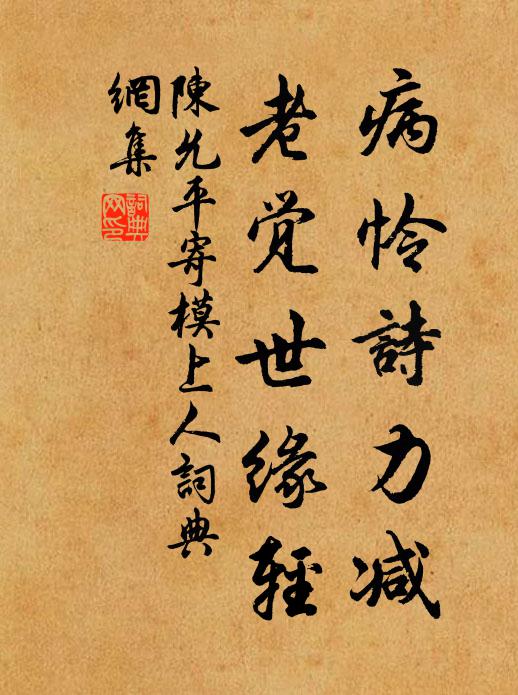 病怜詩力减
老觉世缘輕
陳允平寄模上人詞典
網集
詞典网印